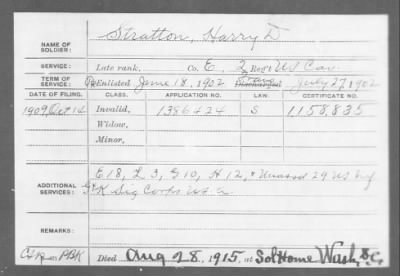 NAME OF SOLDIER: Stratton, Harry D
SERVICE: Late rank, Co. E, 2 Reg't US Cav.
TERM OF SERVICE: Re Enlisted June 18, 1902 Discharged July 27, 1902
DATE OF FILING. CLASS. APPLICATION NO. LAW. CERTIFICATE NO.
1909, Oct 14 Invalid, 1386424 S 1158,835
Widow,
Minor,
ADDITIONAL SERVICES: E 18, L 3, G 10, H 12, & Unassd 29 US Inf
K Sig Corps U.S.A.
REMARKS:
Died Aug 28, 1915, at Sol Home Wash, D.C.